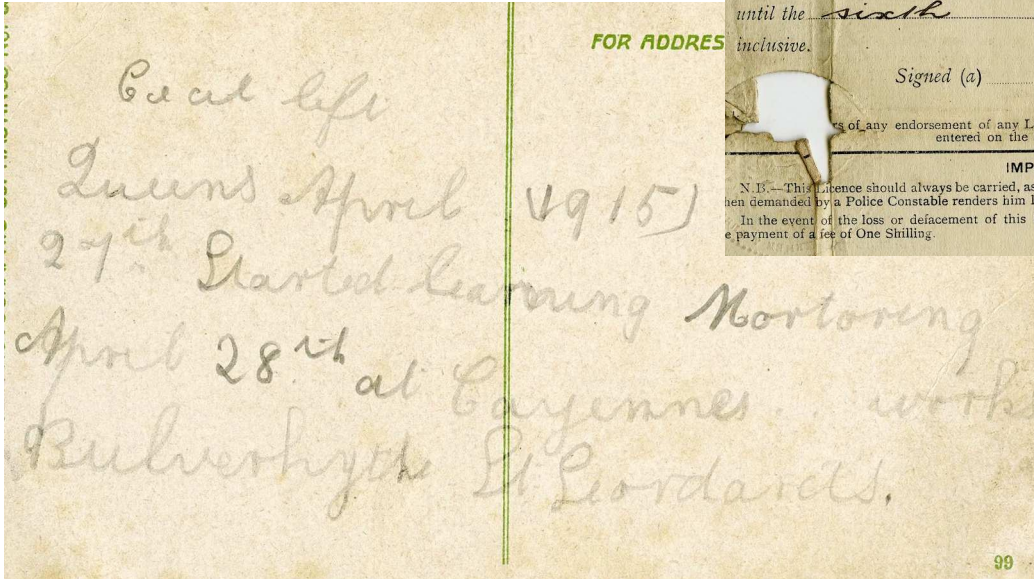 FOR ADDRES
left
Queens April (1915)
27th Started learning Mortoring
April 28th at Cayennes.. work
Bulverhythe St Leordards.
99
until the sixth
inclusive.
Signed (a)
rs of any endorsement of any L
entered on the
IMP
N.B.—This Licence should always be carried, as
hen demanded by a Police Constable renders him l
In the event of the loss or defacement of this
e payment of a fee of One Shilling.